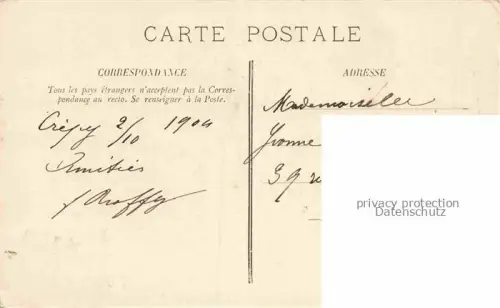 CARTE POSTALE
CORRESPONDANCE
Tous les pays étrangers n'acceptent pas la Corres-
pondance au recto. Se renseigner à la Poste.
Crépy 2/10 1904
Amitiés
ADRESSE
Mademoiselle
Yvonne
39
privacy protection
Datenschutz